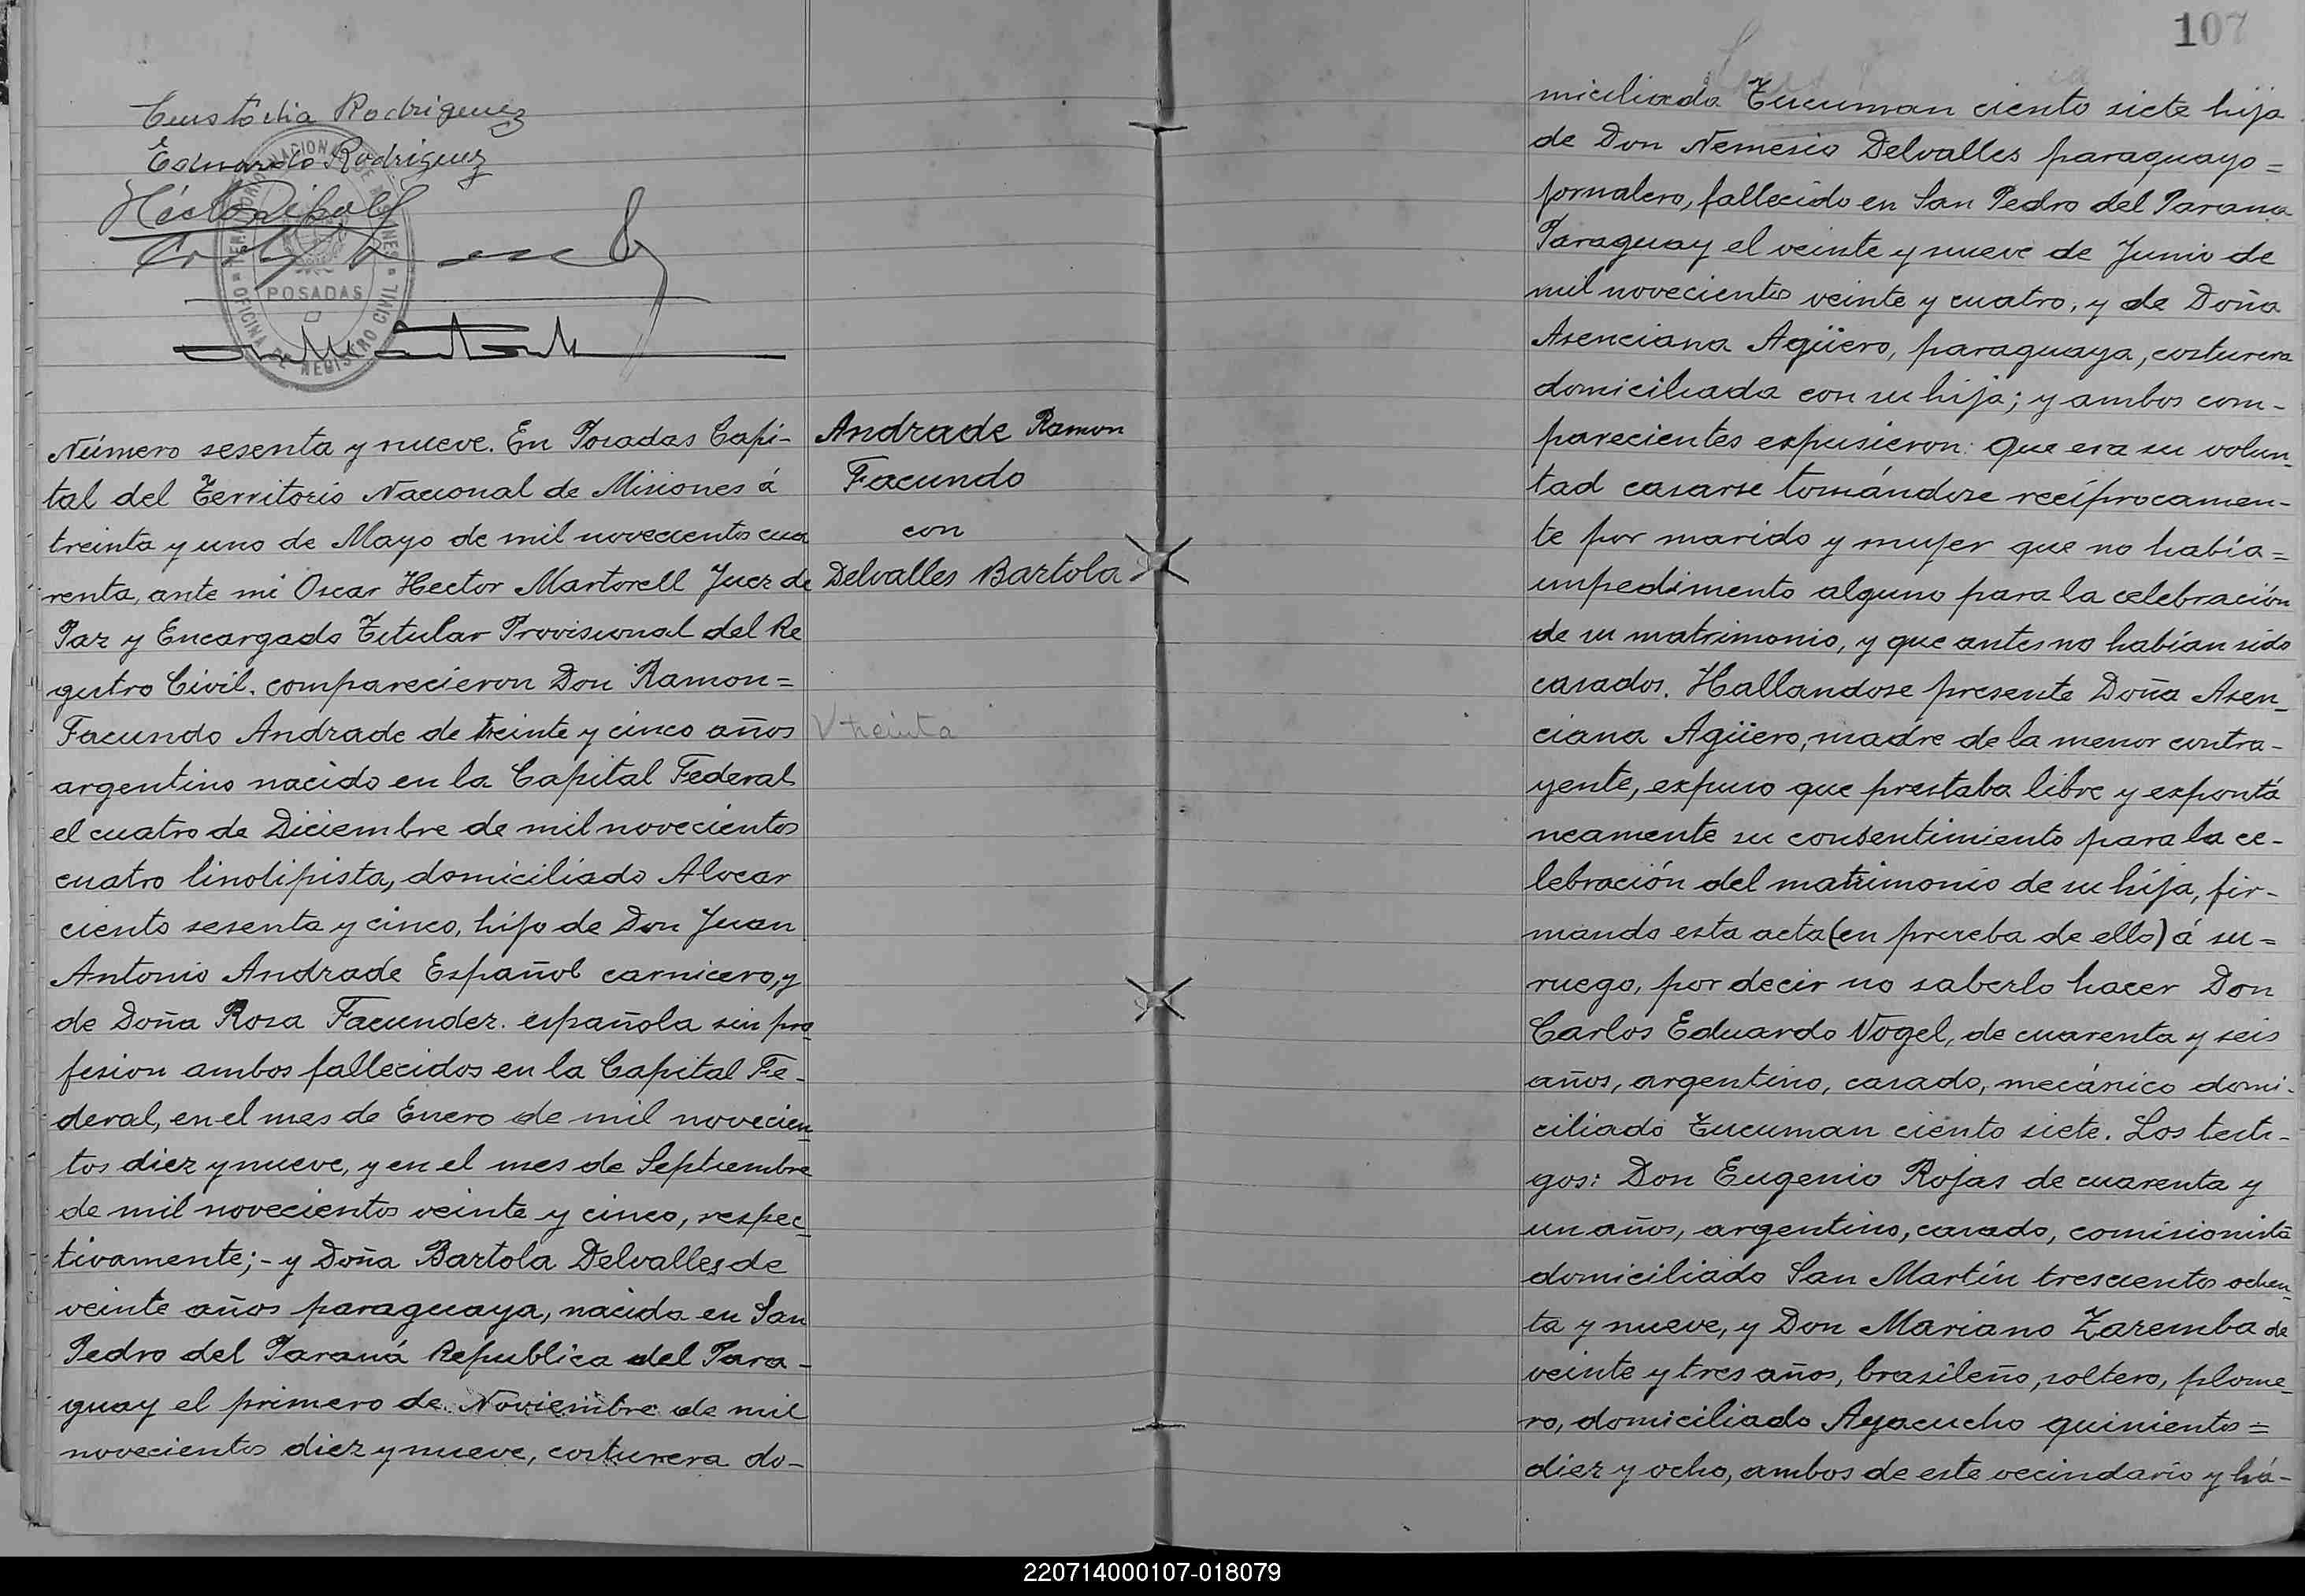 Custodia Rodriguez
Eduardo Rodriguez
POSADAS
OFICINA DE REGISTRO CIVIL
Número sesenta y nueve. En Posadas Capi-
tal del Territorio Nacional de Misiones á
treinta y uno de Mayo de mil novecientos cua
renta, ante mi Oscar Hector Martorell Juez de
Paz y Encargado Titular Provisional del Re
gistro Civil. comparecieron Don Ramon=
Facundo Andrade de treinte y cinco años
argentino nacido en la Capital Federal
el cuatro de Diciembre de mil novecientos
cuatro linotipista, domiciliado Alvear
ciento sesenta y cinco, hijo de Don Juan
Antonio Andrade Español carnicero, y
de Doña Rosa Facundez. española sin pro
fesion ambos fallecidos en la Capital Fe-
deral, en el mes de Enero de mil novecien
tos diez y nueve, y en el mes de Septiembre
de mil novecientos veinte y cinco, respec
tivamente;- y Doña Bartola Delvalles de
veinte años paraguaya, nacida en San
Pedro del Paraná Republica del Para-
guay el primero de Noviembre de mil
novecientos diez y nueve, costurera do-
Andrade Ramon
Facundo
con
Delvalles Bartola
V treinta
107
miciliada Tucuman ciento siete hija
de Don Nemesio Delvalles paraguayo=
jornalero, fallecido en San Pedro del Parana
Paraguay el veinte y nueve de Junio de
mil novecientos veinte y cuatro, y de Doña
Asenciana Agüero, paraguaya, costurera
domiciliada con su hija; y ambos com-
parecientes expusieron: Que era su volun-
tad casarse tomándose recíprocamen-
te por marido y mujer que no había=
impedimento alguno para la celebración
de su matrimonio, y que antes no habían sido
casados. Hallandose presente Doña Asen-
ciana Agüero, madre de la menor contra-
yente, expuso que prestaba libre y espontá
neamente su consentimiento para la ce-
lebración del matrimonio de su hija, fir-
mando esta acta (en prueba de ello) á su=
ruego, por decir no saberlo hacer Don
Carlos Eduardo Vogel, de cuarenta y seis
años, argentino, casado, mecánico domi-
ciliado Tucuman ciento siete. Los testi-
gos: Don Eugenio Rojas de cuarenta y
un años, argentino, casado, comisionista
domiciliado San Martín trescientos ochen-
ta y nueve, y Don Mariano Zaremba de
veinte y tres años, brasileño, soltero, plome-
ro, domiciliado Ayacucho quinientos=
diez y ocho, ambos de este vecindario y há-
220714000107-018079